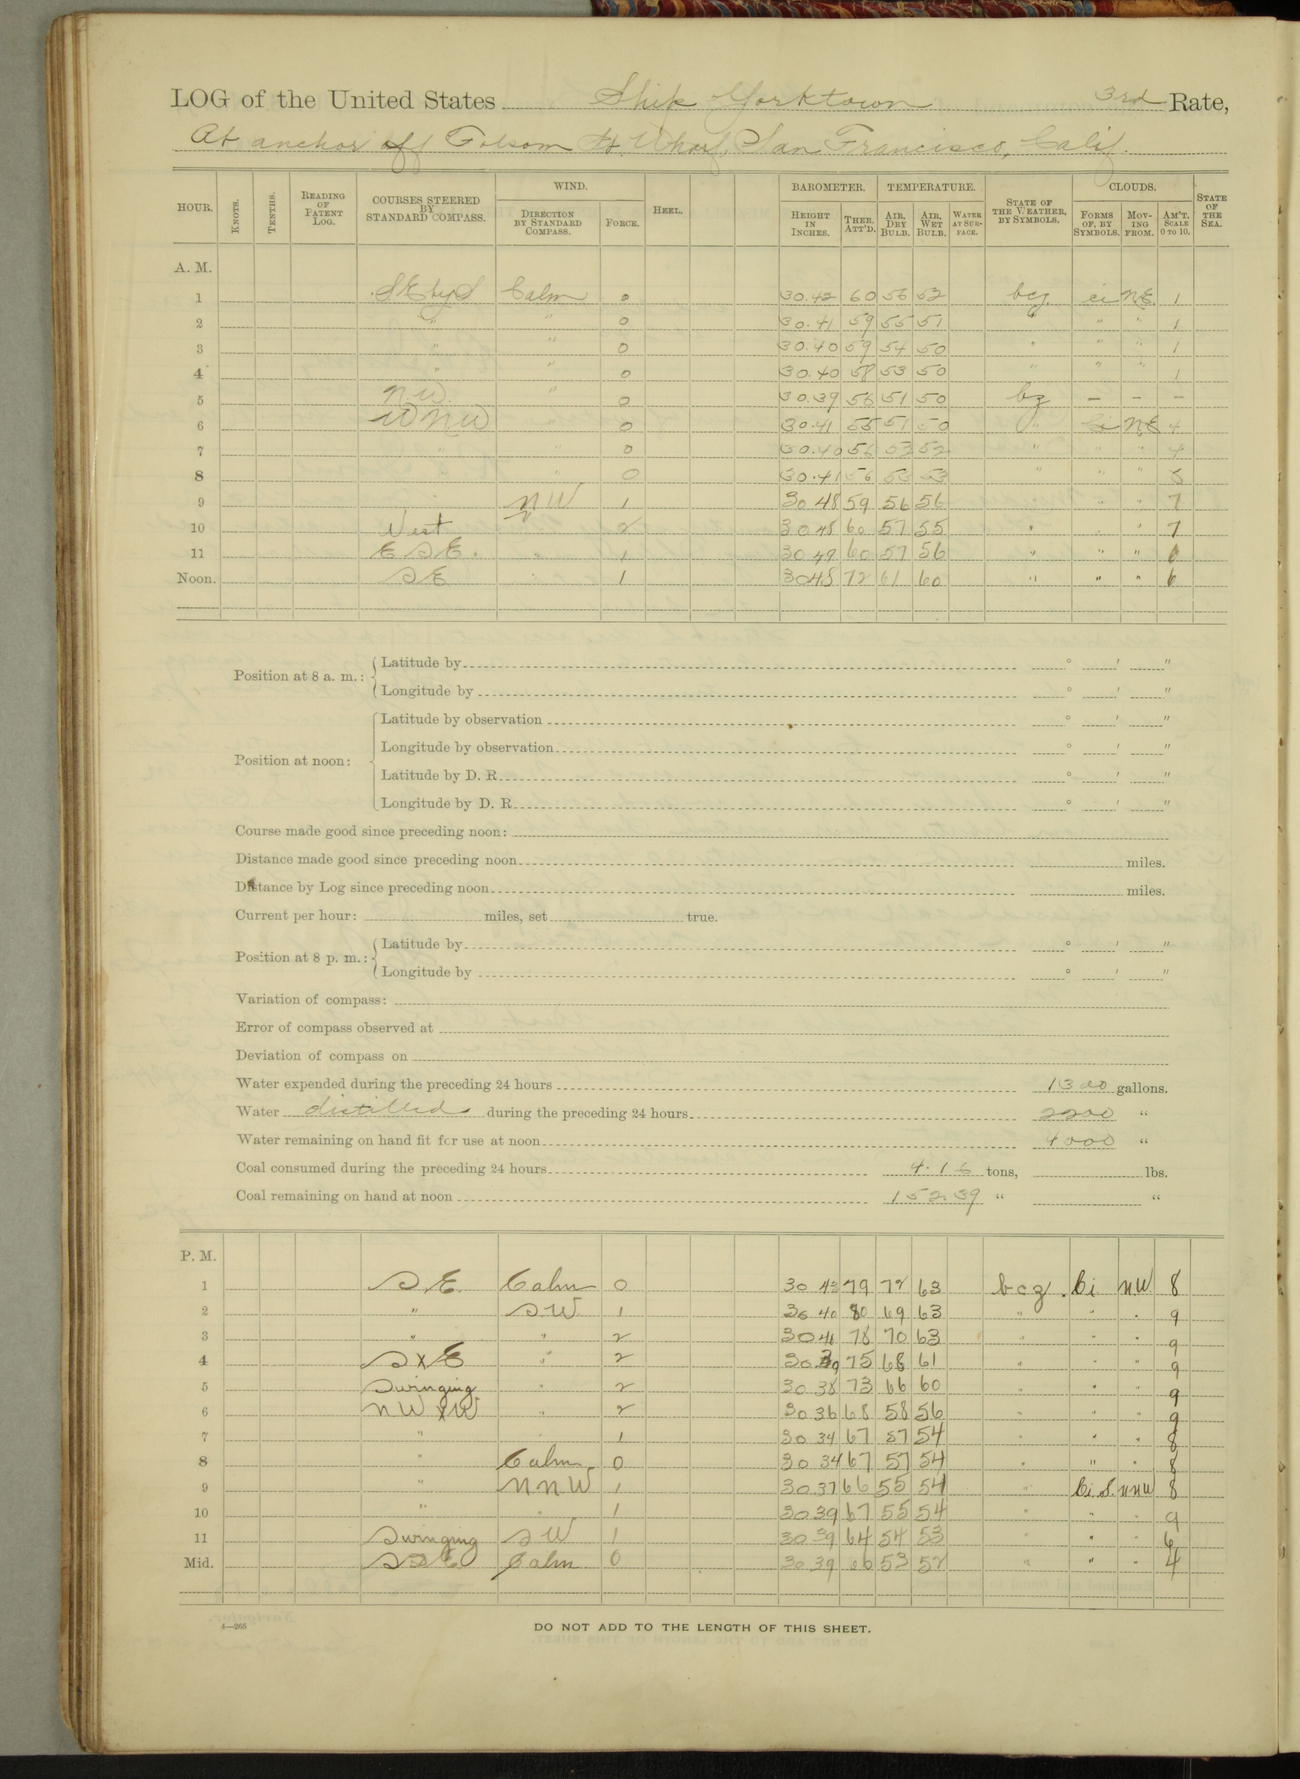 LOG of the United States Ship Yorktown 3rd Rate,
At anchor off Folsom St. Wharf, San Francisco, Calif.
HOUR. KNOTS. TENTHS. READING OF PATENT LOG. COURSES STEERED BY STANDARD COMPASS. WIND. DIRECTION BY STANDARD COMPASS. FORCE. HEEL. BAROMETER. HEIGHT IN INCHES. THER. ATT'D. TEMPERATURE. AIR, DRY BULB. AIR, WET BULB. WATER AT SURFACE. STATE OF THE WEATHER, BY SYMBOLS. CLOUDS. FORMS OF, BY SYMBOLS. MOVING FROM. AM'T. SCALE 0 TO 10. STATE OF THE SEA.
A. M.
1 SE by S Calm 0 30.42 60 56 52 bcz ci NE 1
2 " " 0 30.41 59 55 51 " " " 1
3 " " 0 30.40 59 54 50 " " " 1
4 " " 0 30.40 58 53 50 " " " 1
5 N.W. " 0 30.39 56 51 50 bz – – –
6 WNW 0 30.41 55 51 50 " NE 4
7 " " 0 30.40 56 52 52 " " " 4
8 " 0 30.41 56 53 53 " " " 5
9 NW 1 30 48 59 56 56 " " 7
10 West 2 30 48 60 57 55 " " 7
11 ESE. " 1 30 49 60 57 56 " " " 6
Noon. SE " 1 30 48 72 61 60 " " " 6
Position at 8 a. m.: Latitude by ° ' "
Longitude by ° ' "
Position at noon: Latitude by observation ° ' "
Longitude by observation ° ' "
Latitude by D. R. ° ' "
Longitude by D. R. ° ' "
Course made good since preceding noon:
Distance made good since preceding noon miles.
Distance by Log since preceding noon miles.
Current per hour: miles, set true.
Position at 8 p. m.: Latitude by ° ' "
Longitude by ° ' "
Variation of compass:
Error of compass observed at
Deviation of compass on
Water expended during the preceding 24 hours 1300 gallons.
Water distilled during the preceding 24 hours 2200 "
Water remaining on hand fit for use at noon 4000 "
Coal consumed during the preceding 24 hours 4.16 tons, lbs.
Coal remaining on hand at noon 152.39 " "
P. M.
1 SE Calm 0 30 43 79 72 63 bcz. Ci NW 8
2 " SW 1 30 40 80 69 63 " " " 9
3 " " 2 30 41 78 70 63 " " " 9
4 SxE " 2 30.39 75 68 61 " " " 9
5 Swinging " 2 30 38 73 66 60 " " " 9
6 NWxW " 2 30 36 68 58 56 " " " 9
7 " " 1 30 34 67 57 54 " " " 8
8 " Calm 0 30 34 67 57 54 " " " 8
9 " NNW 1 30 37 66 55 54 " Ci S. NNW 8
10 " " 1 30 39 67 55 54 " " " 9
11 Swinging SW 1 30 39 64 54 53 " " " 6
Mid. SSE Calm 0 30 39 66 53 52 " " " 4
4—265
DO NOT ADD TO THE LENGTH OF THIS SHEET.